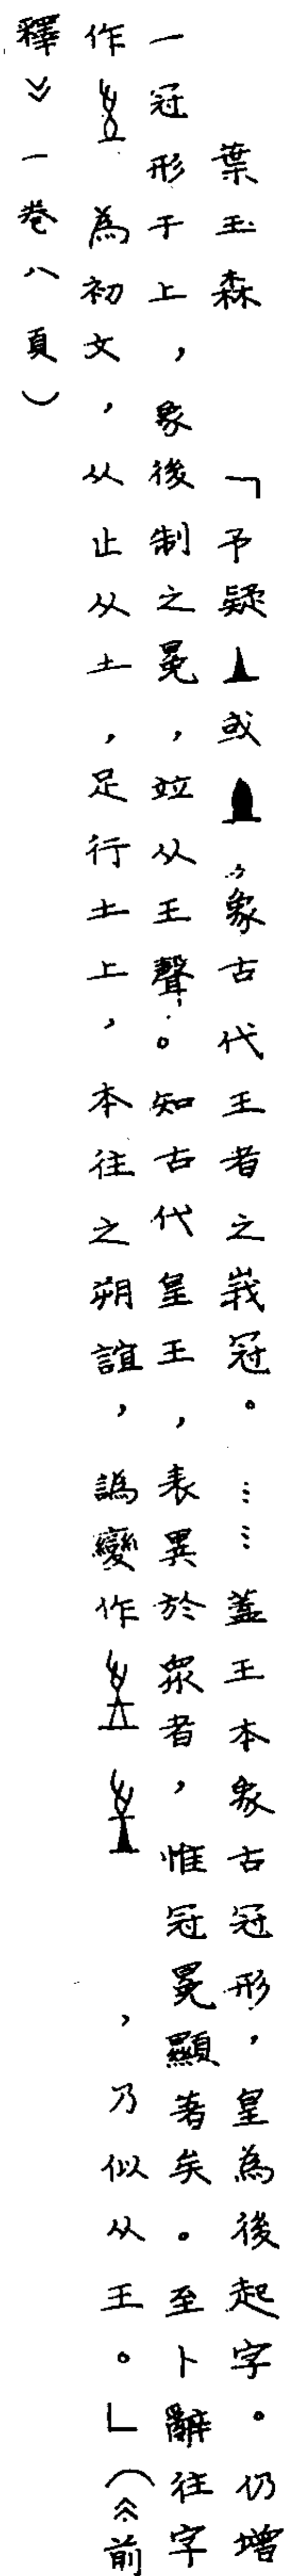 葉玉森　「予疑或,象古代王者之峩冠。……蓋王本象古冠形，皇為後起字。仍增
一冠形于上，象後制之冕，竝从王聲。知古代皇王，表異於眾者，惟冠冕顯著矣。至卜辭往字
作為初文，从止从土，足行土上，本往之朔誼，譌變作，乃似从王。」（《前
釋》一卷八頁）